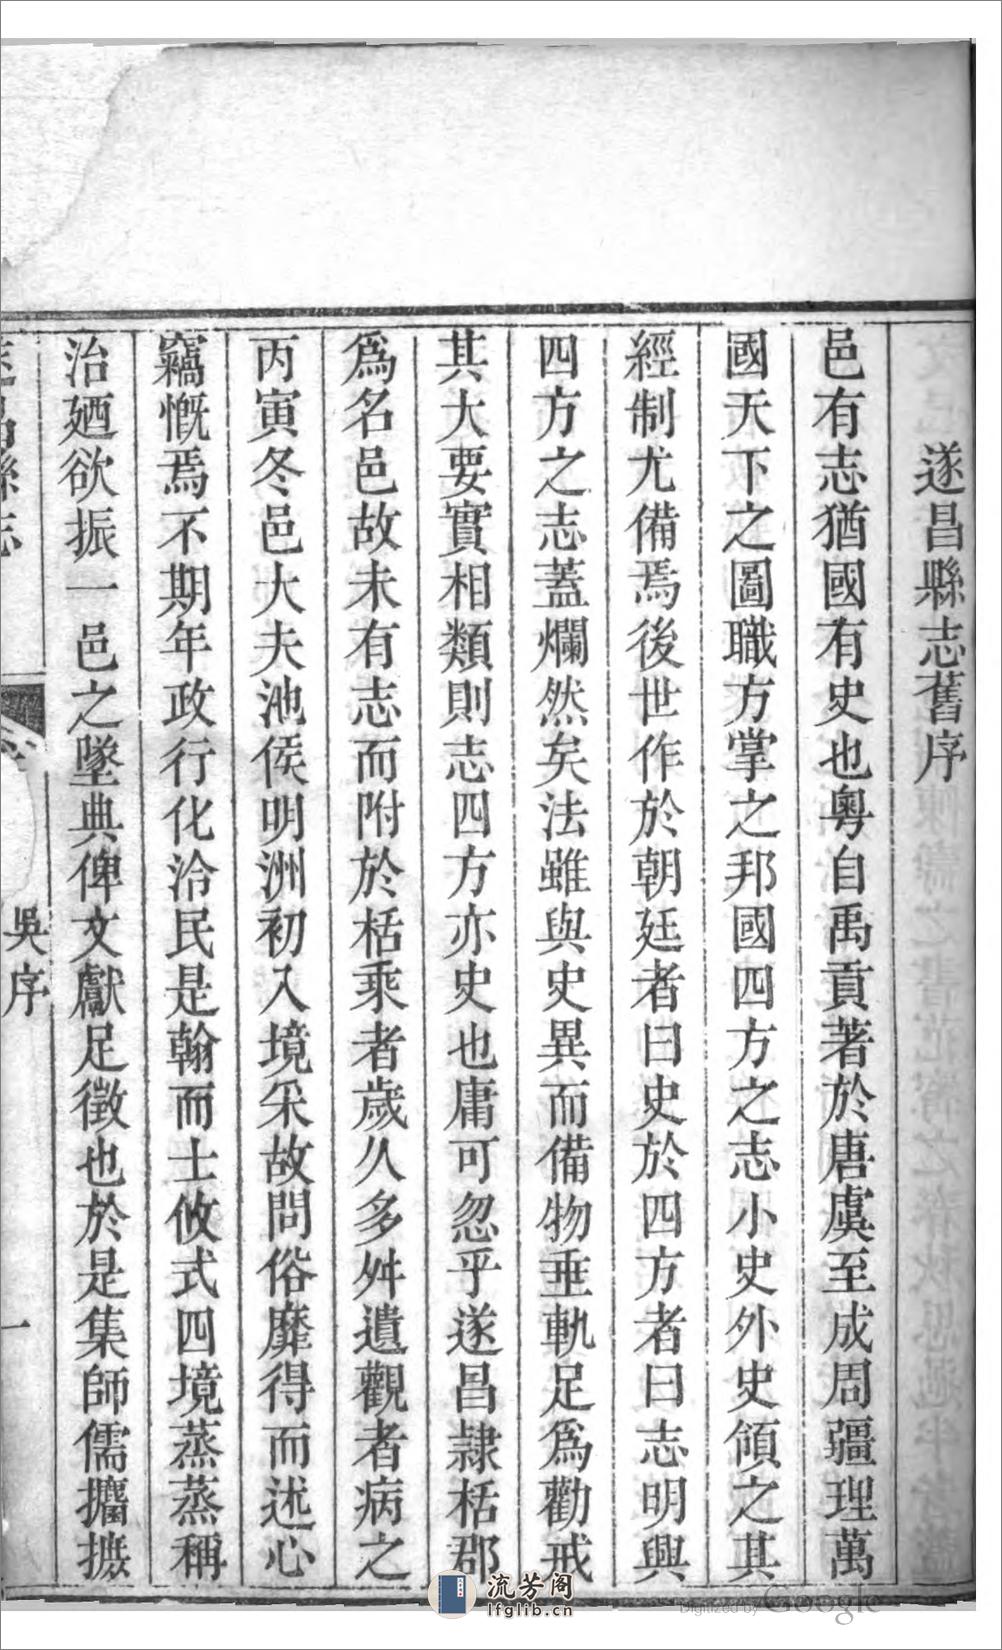 遂昌縣志舊序
邑有志猶國有史也粵自禹貢著於唐虞至成周疆理萬
國天下之圖職方掌之邦國四方之志小史外史領之其
經制尤備焉後世作於朝廷者曰史於四方者曰志明興
四方之志蓋爛然矣法雖與史異而備物垂軌足爲勸戒
其大要實相類則志四方亦史也庸可忽乎遂昌隸栝郡
爲名邑故未有志而附於栝乘者歲久多舛遺觀者病之
丙寅冬邑大夫池侯明洲初入境采故問俗靡得而述心
竊慨焉不期年政行化洽民是翰而士攸式四境蒸蒸稱
治廼欲振一邑之墜典俾文獻足徵也於是集師儒攟摭
遂昌縣志
吳序
一
流芳阁
lfglib.cn
Digitized by Google